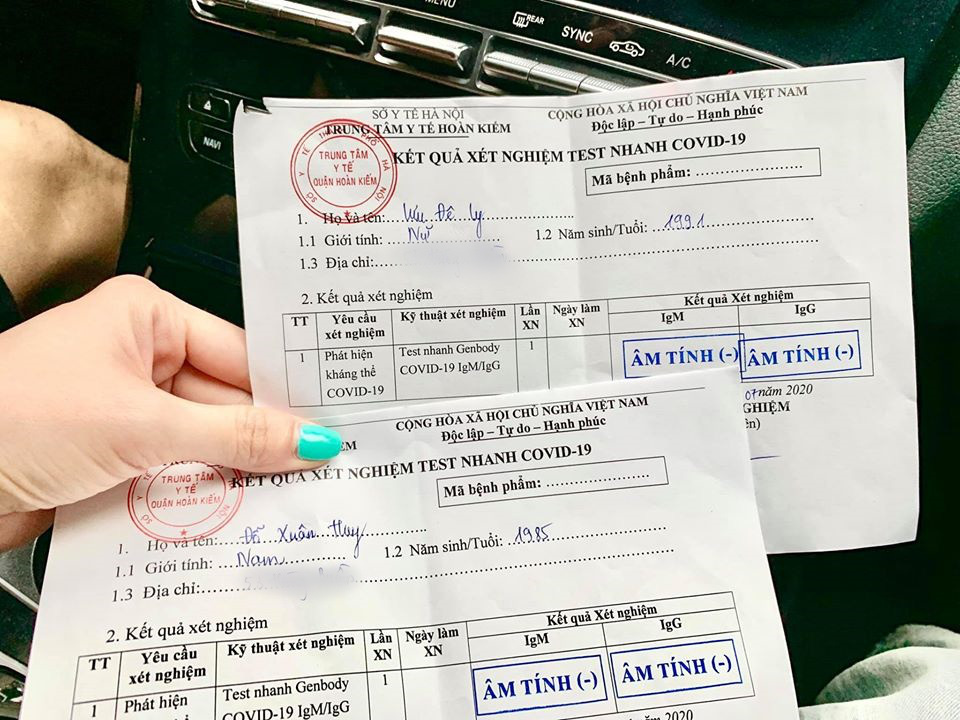 MENU
REAR
SYNC
A/C
NAVI
SỞ Y TẾ HÀ NỘI
TRUNG TÂM Y TẾ HOÀN KIẾM
CỘNG HÒA XÃ HỘI CHỦ NGHĨA VIỆT NAM
Độc lập – Tự do – Hạnh phúc
SỞ Y TẾ THÀNH PHỐ HÀ NỘI
TRUNG TÂM
Y TẾ
QUẬN HOÀN KIẾM
KẾT QUẢ XÉT NGHIỆM TEST NHANH COVID-19
Mã bệnh phẩm: ........................
1. Họ và tên: Ưu Đê Ly
1.1 Giới tính: Nữ 1.2 Năm sinh/Tuổi: 1991
1.3 Địa chỉ:
2. Kết quả xét nghiệm
TT Yêu cầu xét nghiệm Kỹ thuật xét nghiệm Lần XN Ngày làm XN Kết quả Xét nghiệm
IgM IgG
1 Phát hiện kháng thể COVID-19 Test nhanh Genbody COVID-19 IgM/IgG 1 ÂM TÍNH (-) ÂM TÍNH (-)
07 năm 2020
GHIỆM
ên)
CỘNG HÒA XÃ HỘI CHỦ NGHĨA VIỆT NAM
Độc lập – Tự do – Hạnh phúc
ẾM
TRUNG TÂM
Y TẾ
QUẬN HOÀN KIẾM
KẾT QUẢ XÉT NGHIỆM TEST NHANH COVID-19
Mã bệnh phẩm: ........................
1. Họ và tên: Đỗ Xuân Huy
1.1 Giới tính: Nam 1.2 Năm sinh/Tuổi: 1985
1.3 Địa chỉ:
2. Kết quả xét nghiệm
TT Yêu cầu xét nghiệm Kỹ thuật xét nghiệm Lần XN Ngày làm XN Kết quả Xét nghiệm
IgM IgG
1 Phát hiện Test nhanh Genbody COVID-19 IgM/IgG 1 ÂM TÍNH (-) ÂM TÍNH (-)
2020